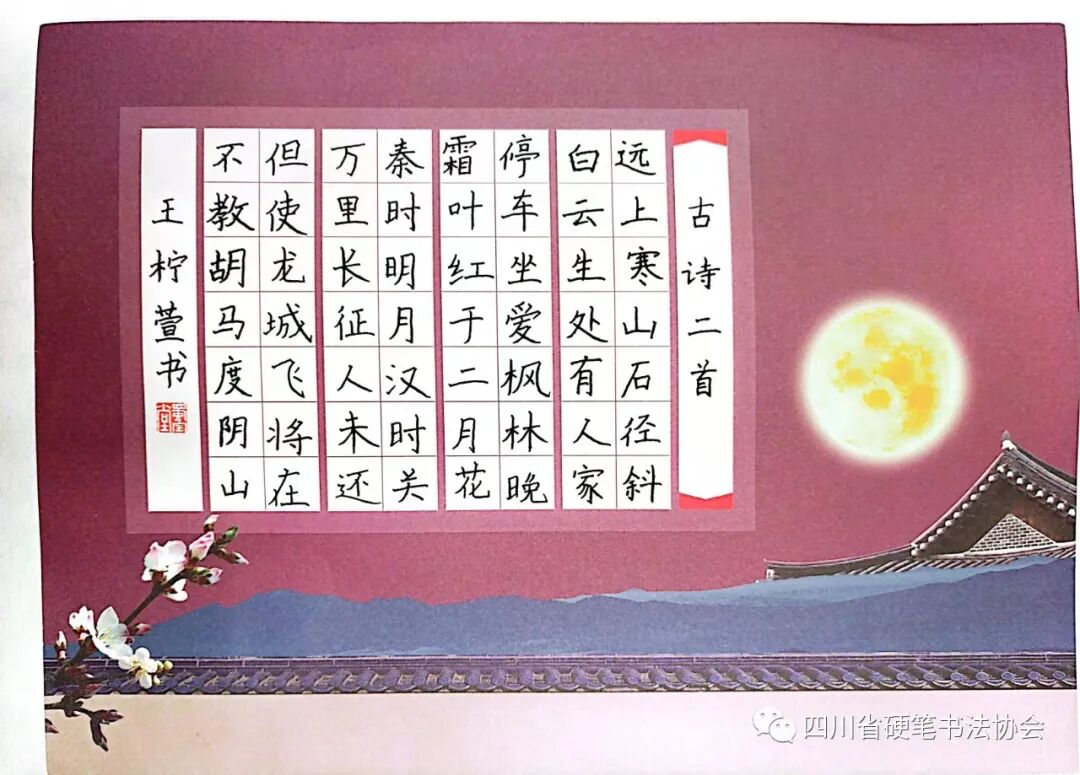 古诗二首
远上寒山石径斜
白云生处有人家
停车坐爱枫林晚
霜叶红于二月花
秦时明月汉时关
万里长征人未还
但使龙城飞将在
不教胡马度阴山
王柠萱书
四川省硬笔书法协会